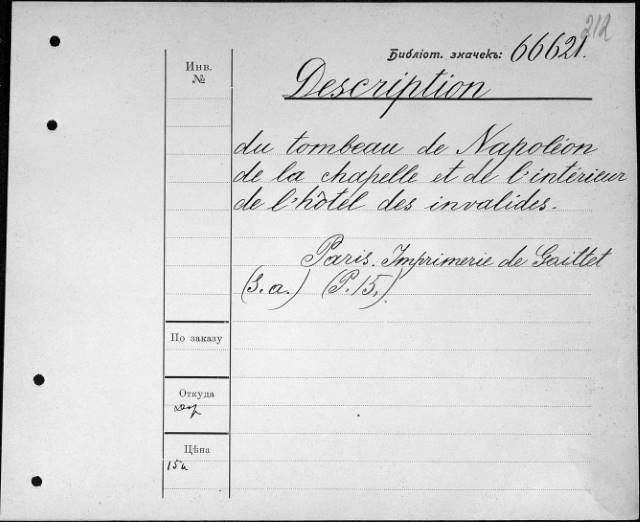 212
Библіот. значекъ: 66621.
Инв.
№
Description
du tombeau de Napoléon
de la chapelle et de l'intérieur
de l'hôtel des invalides.
Paris. Imprimerie de Gaittet
(S.a.) (P.15,)
По заказу
Откуда
Цѣна
15к